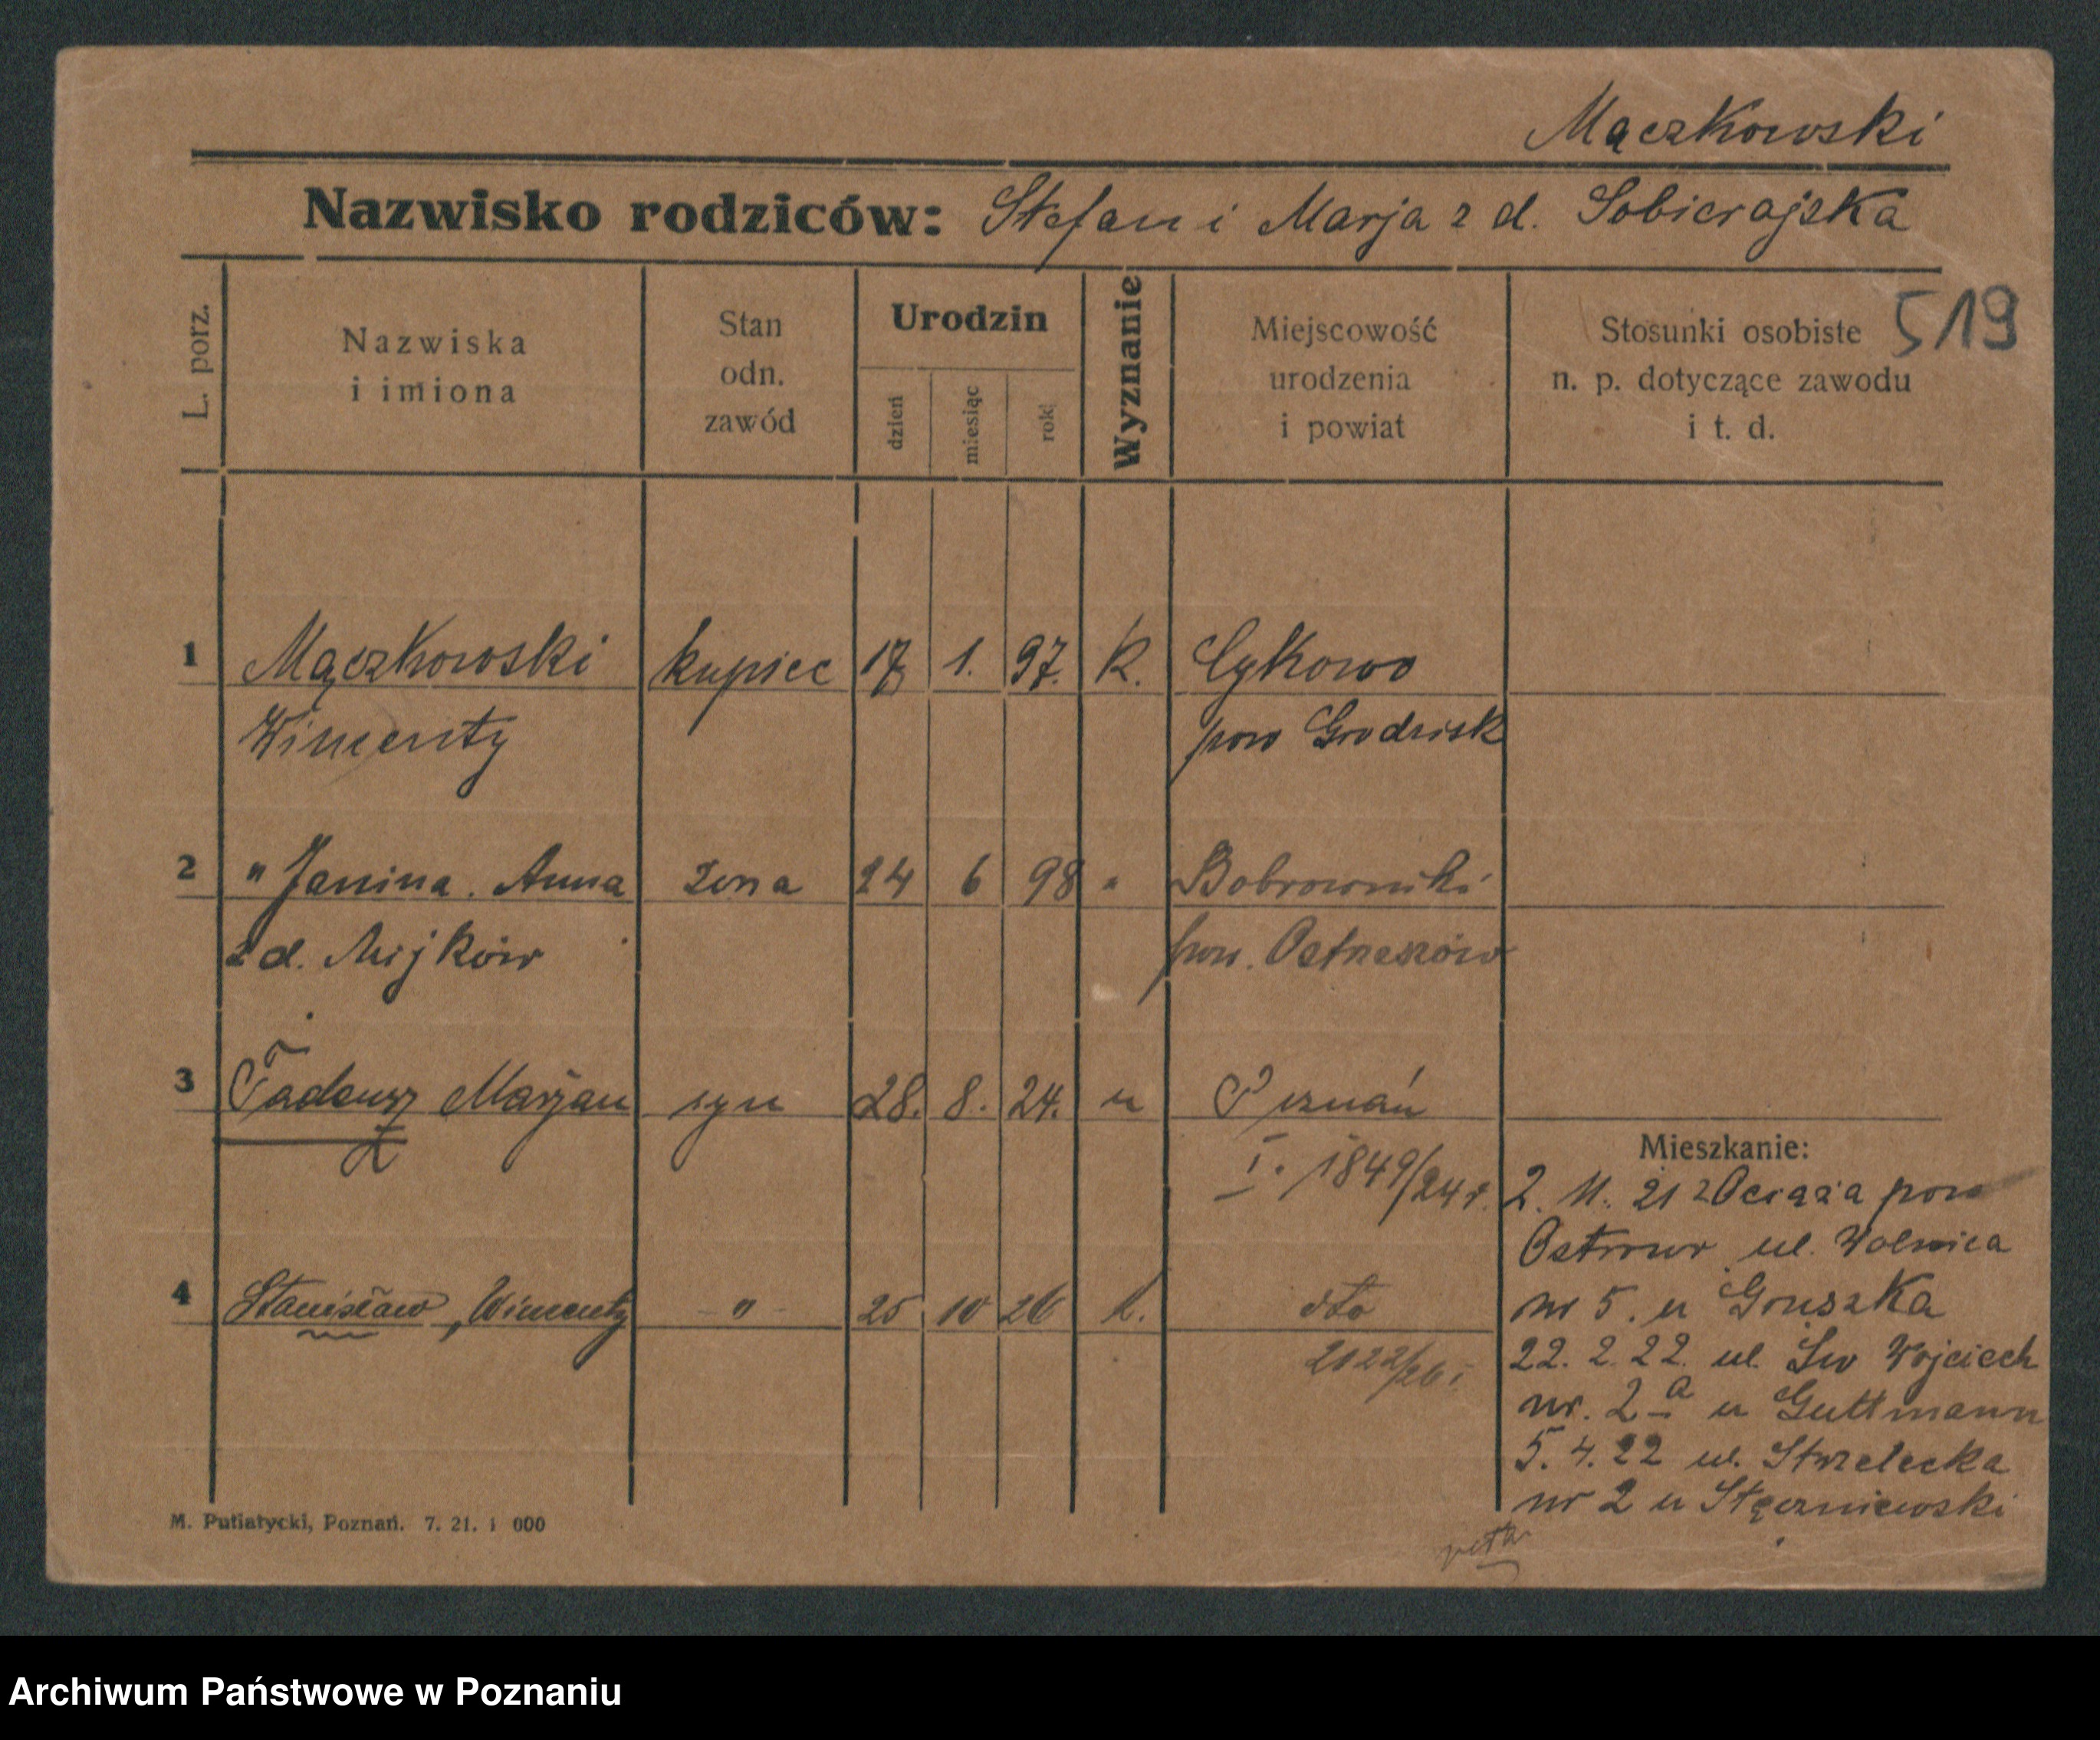 Mączkowski
Nazwisko rodziców: Stefan i Marja z d. Sobierajska
L. porz.
Nazwiska
i imiona
Stan
odn.
zawód
Urodzin
dzień
miesiąc
rok
Wyznanie
Miejscowość
urodzenia
i powiat
Stosunki osobiste
n. p. dotyczące zawodu
i t. d.
519
1 Mączkowski kupiec 17 1. 97. K. Cykowo
Wincenty pow Grodzisk
2 " Janina. Anna żona 24 6 98 " Bobrowniki
z d. Mijków pow. Ostrzeszów
3 Tadeusz Marjan syn 28. 8. 24. " Poznań
I. 1849/24 r.
4 Stanisław, Wincenty - " - 25 10 26 k. dto
2022/26 r.
Mieszkanie:
2. 11. 21 z Ociąża pow
Ostrów ul. Wolnica
nr 5. u Gruszka
22. 2. 22. ul. Św Wojciech
nr. 2 a u Guttmann
5. 4. 22 ul. Strzelecka
nr 2 u Stęczniewski
M. Putiatycki, Poznań. 7. 21. 1 000
Archiwum Państwowe w Poznaniu